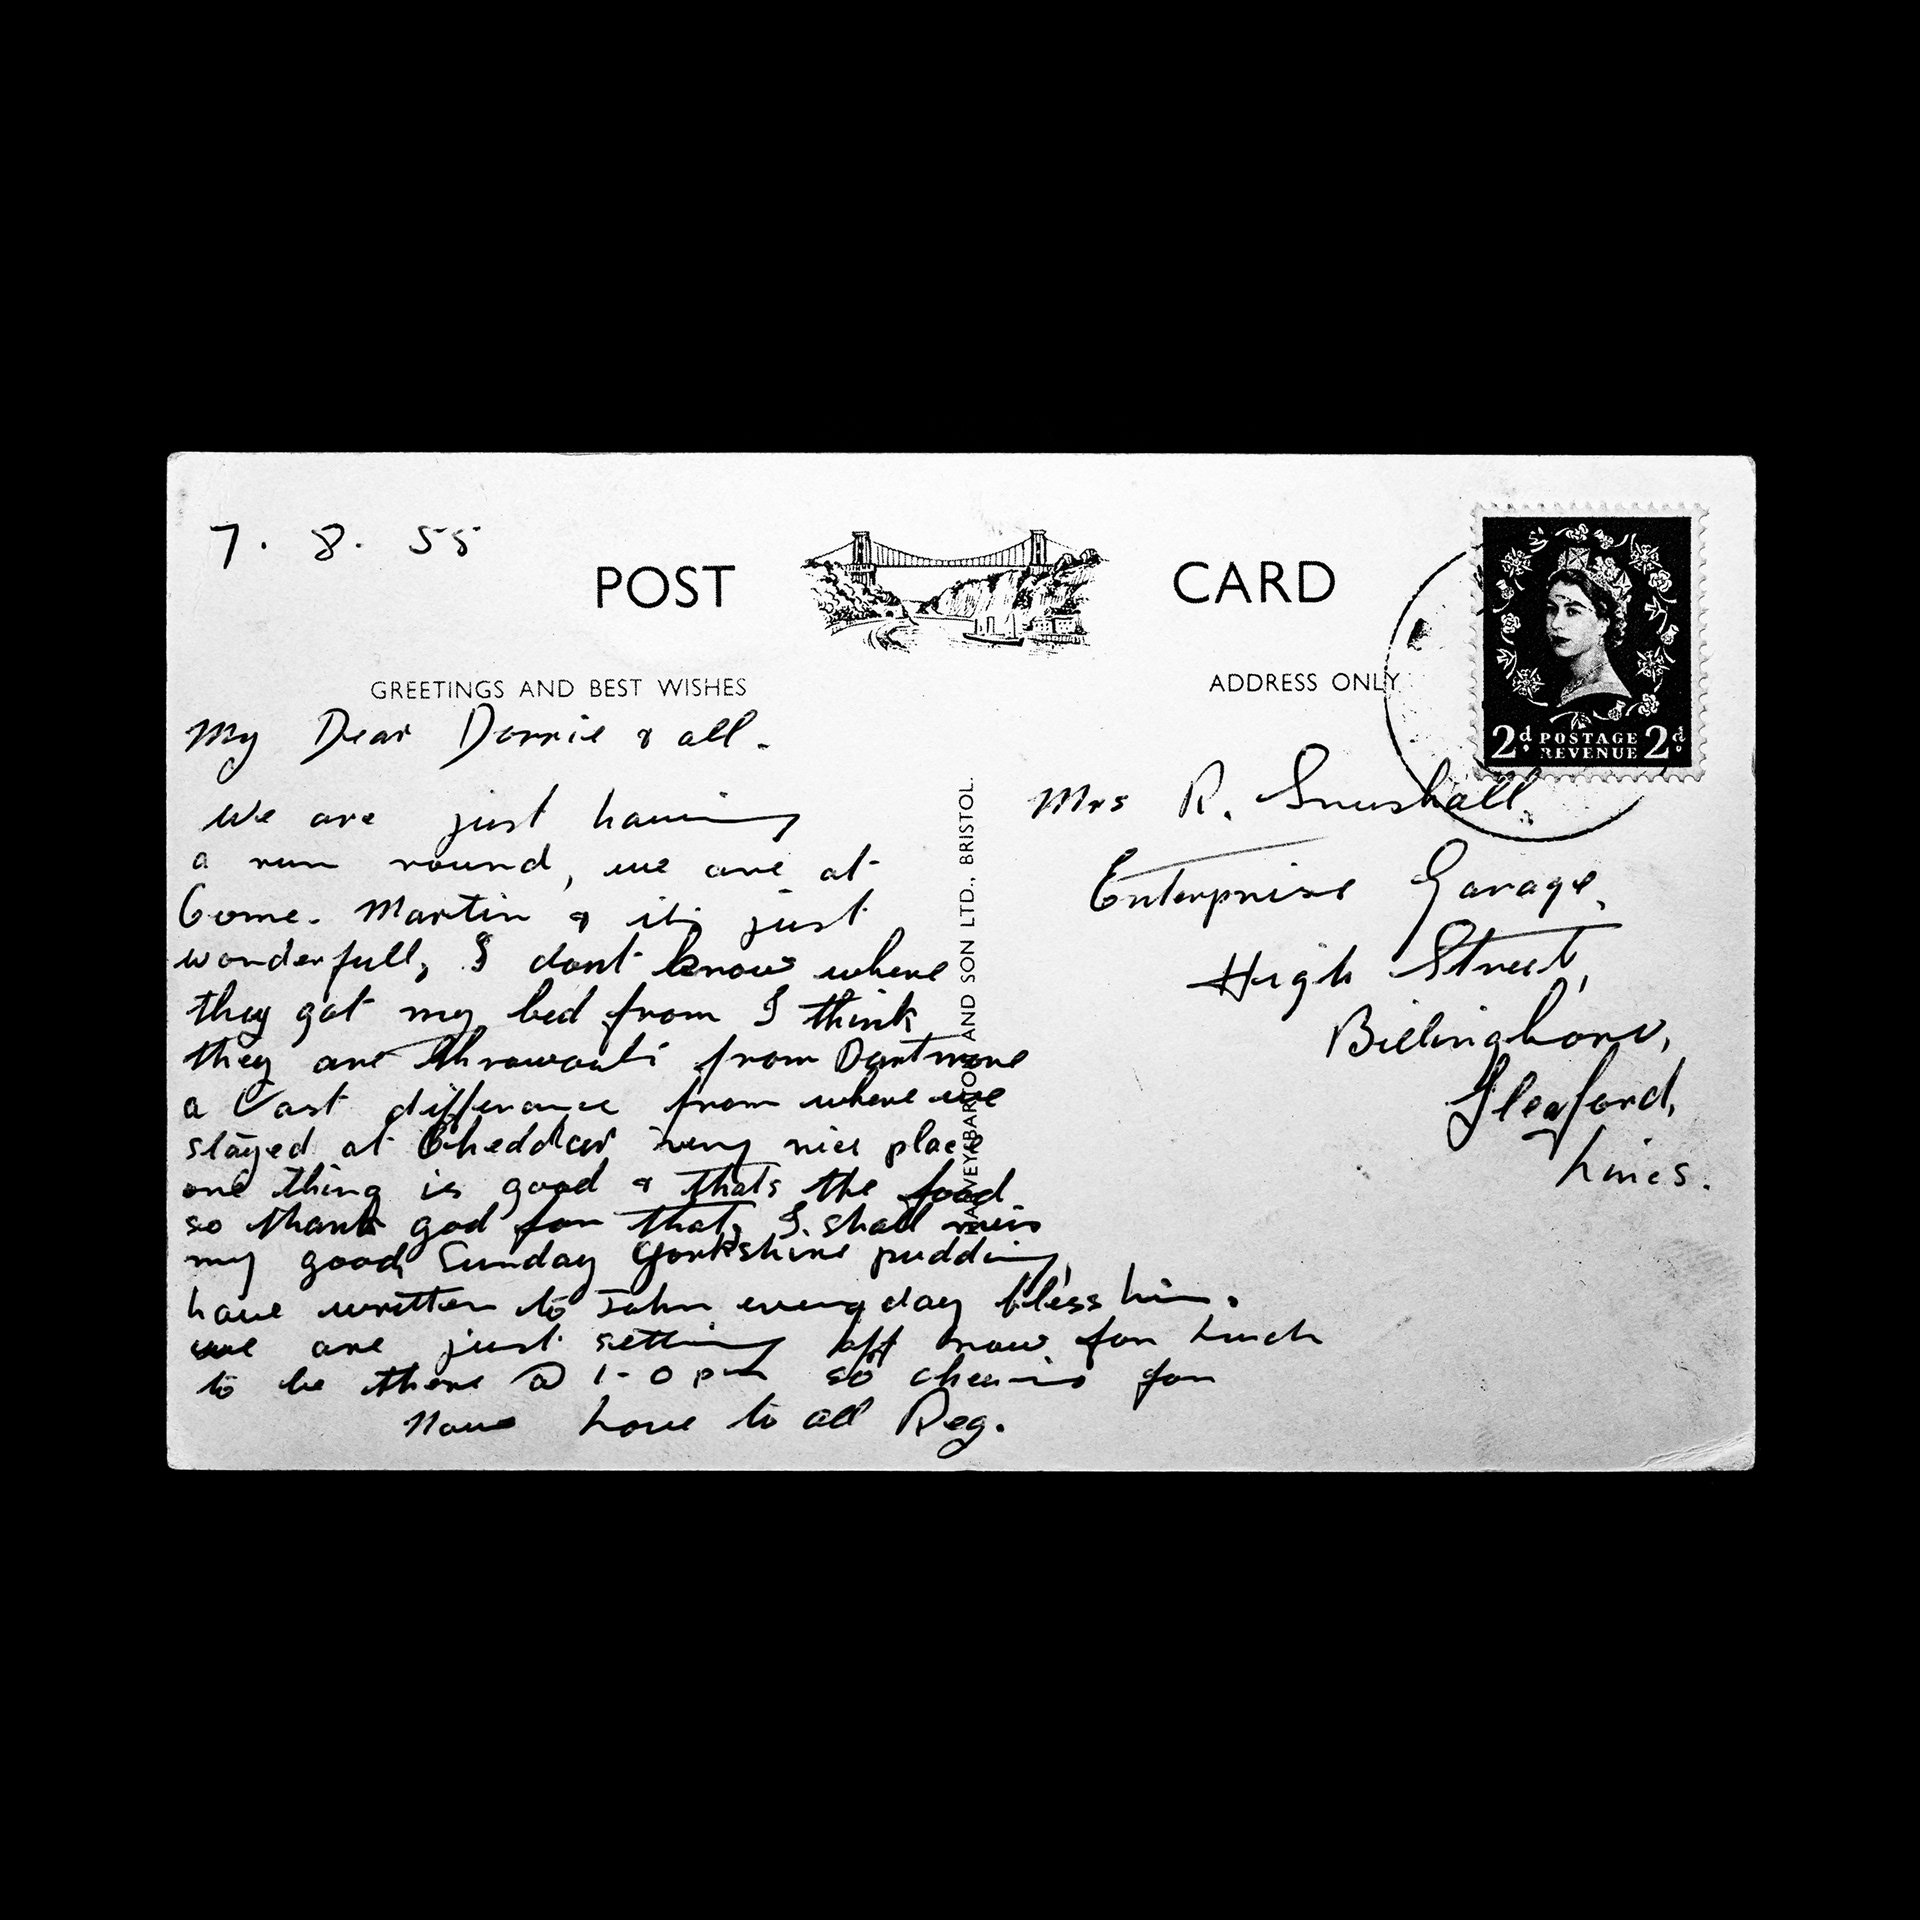 7. 8. 55
POST CARD
GREETINGS AND BEST WISHES
ADDRESS ONLY
2d POSTAGE REVENUE 2d
My Dear Dorrie & all.
We are just having
a run round, we are at
Come. Martin & its just
wonderfull, I dont know where
they got my bed from I think
they are throwouts from Dartmore
a Vast differance from where we
stayed at Cheddar very nice place
one thing is good & thats the food
so thank god for that, I shall miss
my good Sunday Yorkshire pudding
have written to John every day bless him.
we are just setting off now for Lunch
to be there @ 1-0 pm so cheerio for
Now Love to all Reg.
HARVEY BARTON AND SON LTD., BRISTOL.
Mrs R. Snushall,
Enterprise Garage,
High Street,
Billinghboro,
Sleaford,
Lincs.